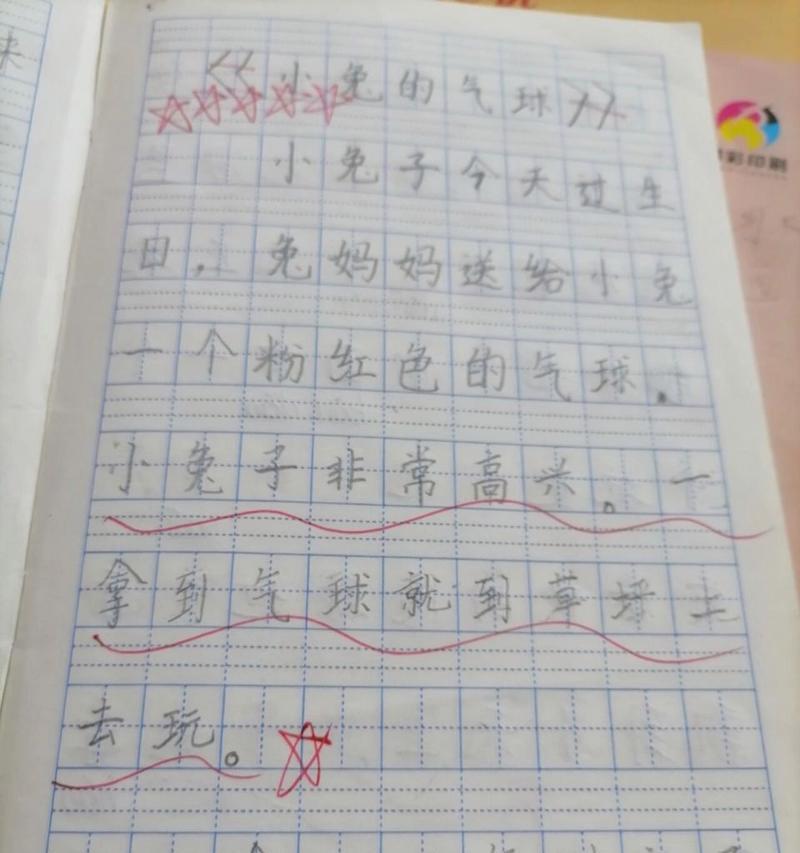 《小兔的气球》
小兔子今天过生
日，兔妈妈送给小兔
一个粉红色的气球。
小兔子非常高兴。一
拿到气球就到草坪上
去玩。
彩印刷